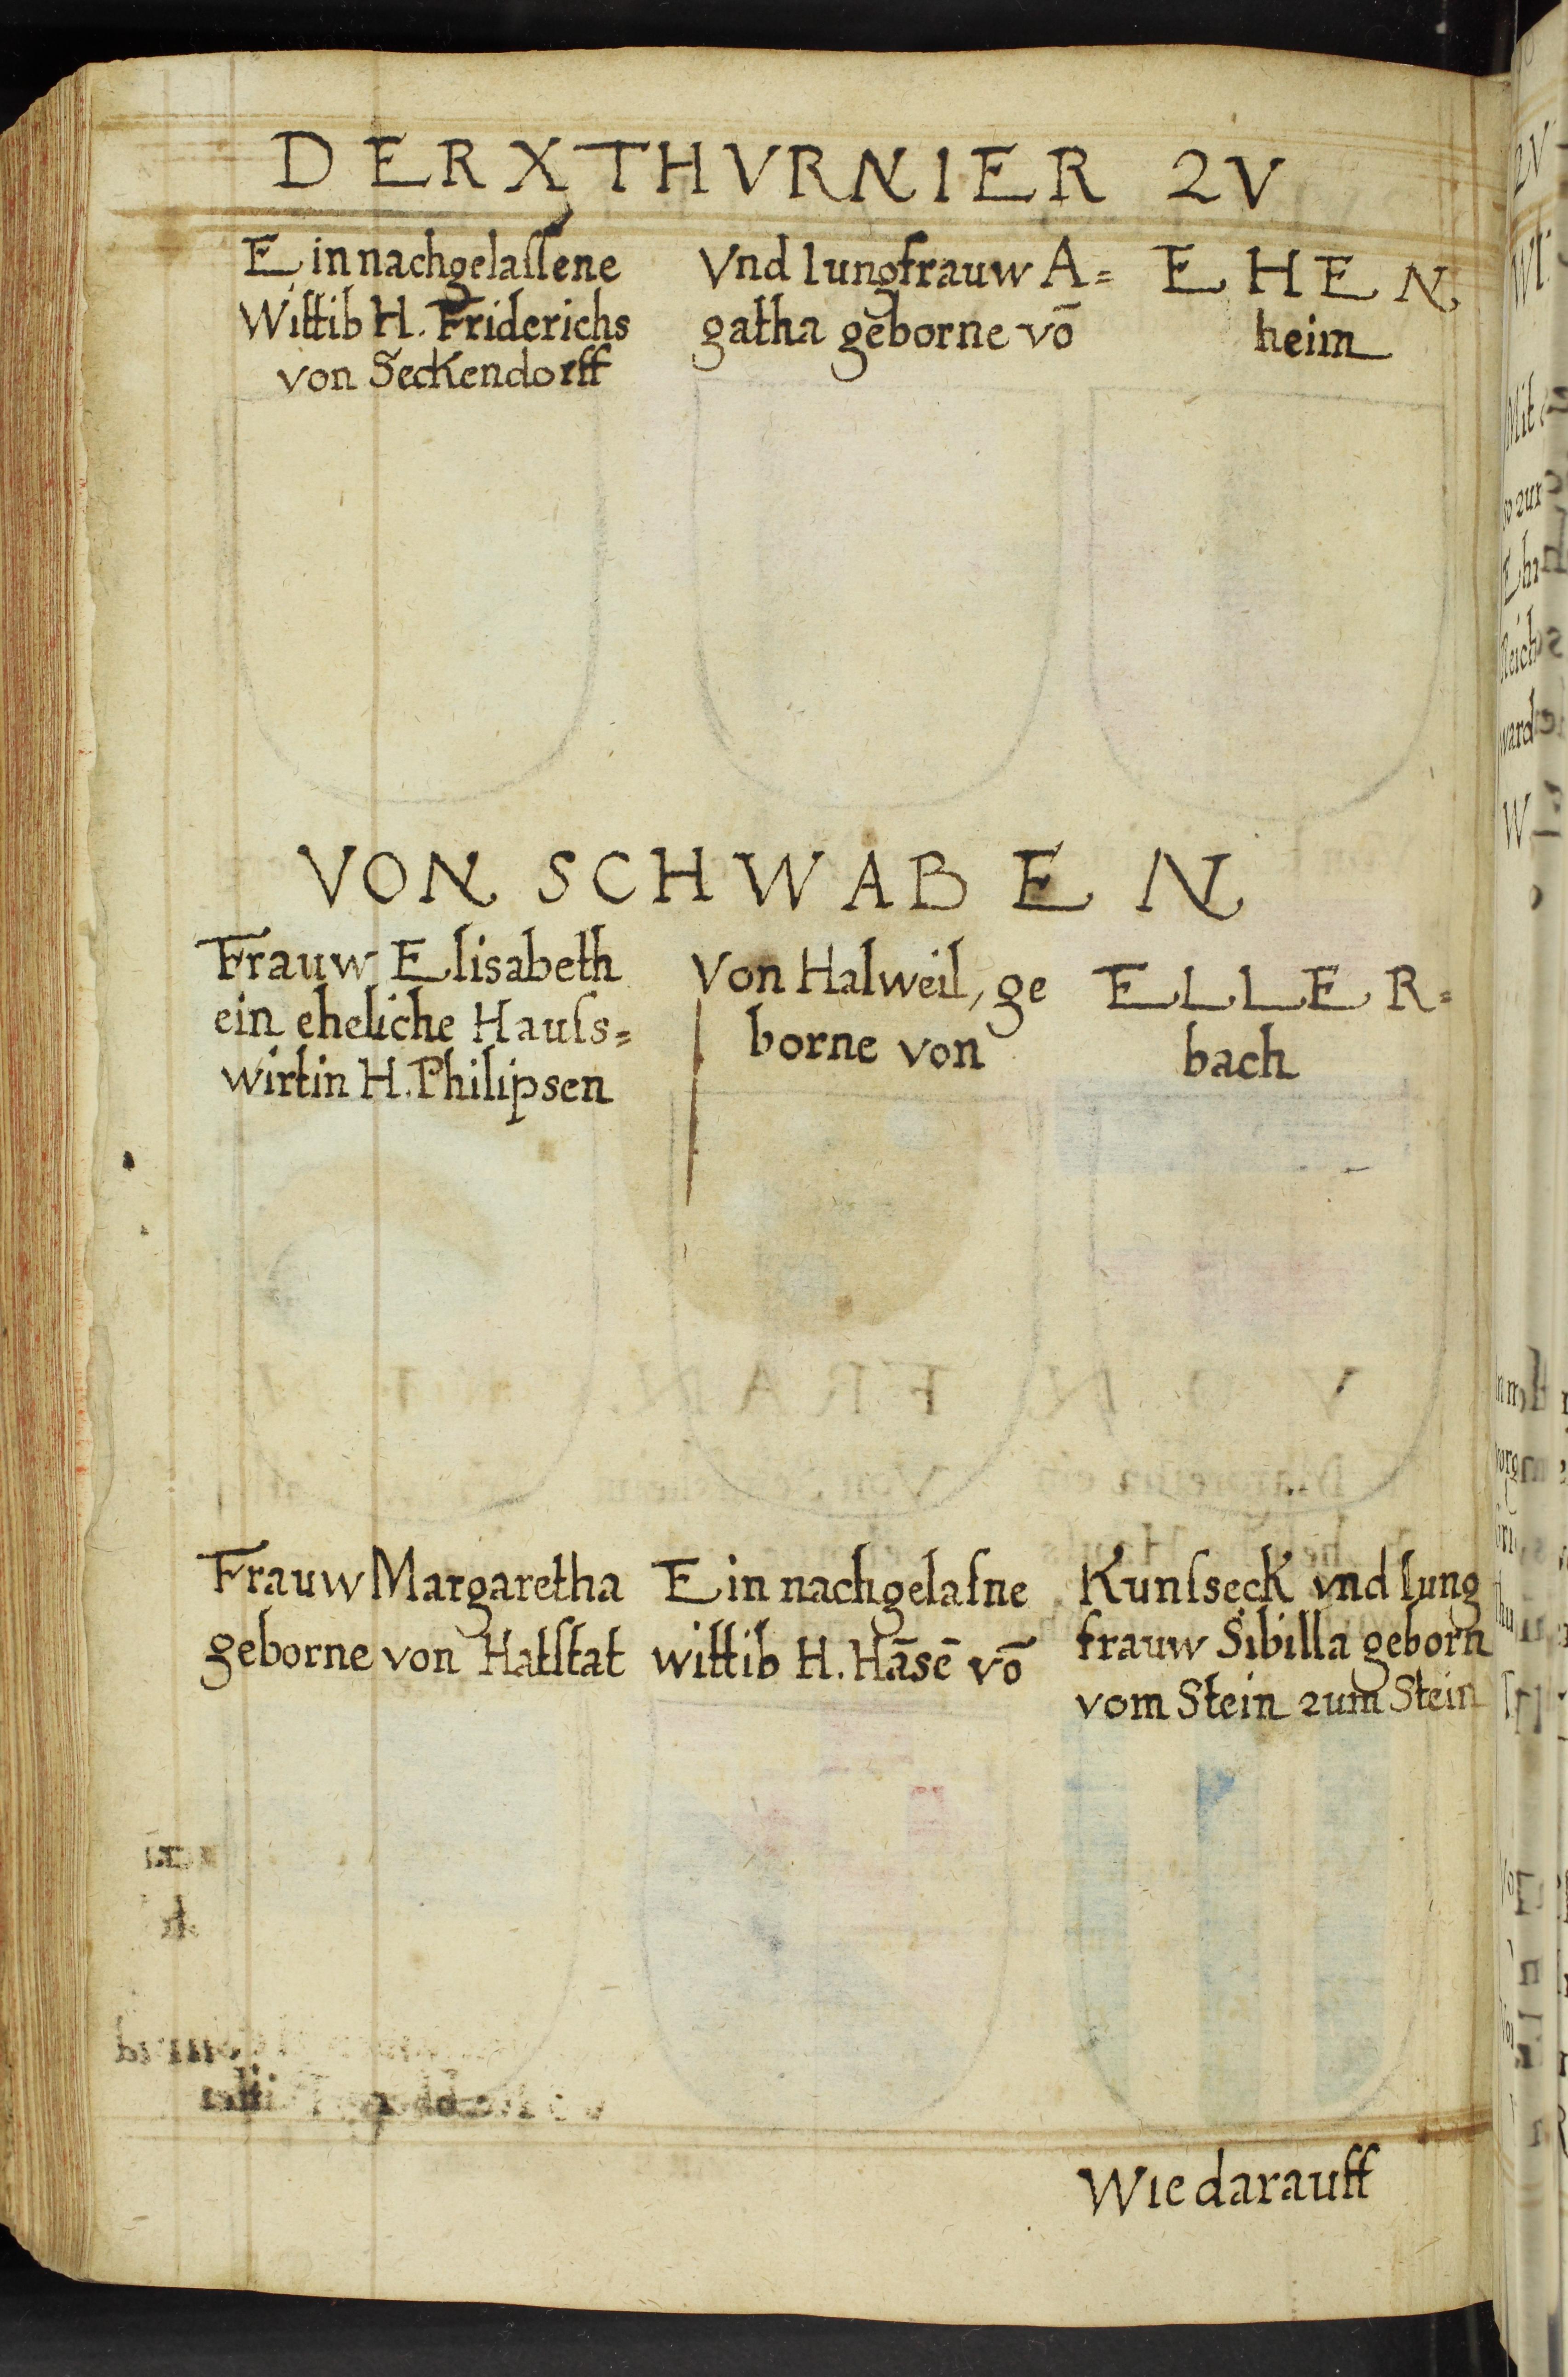 DER X THVRNIER ZV
Ein nachgelaſſene
Wittib H. Friderichs
von Seckendorff
Vnd Iungfrauw A=
gatha geborne vō
EHEN
heim
VON SCHWABEN
Frauw Elisabeth
ein eheliche Hauſs=
wirtin H. Philipsen
Von Halweil, ge
borne von
ELLER=
bach
Frauw Margaretha
geborne von Hatſtat
Ein nachgelaſne
wittib H. Hāsē vō
Kunſseck vnd Iung
frauw Sibilla geborn
vom Stein zum Stein
Wie darauff